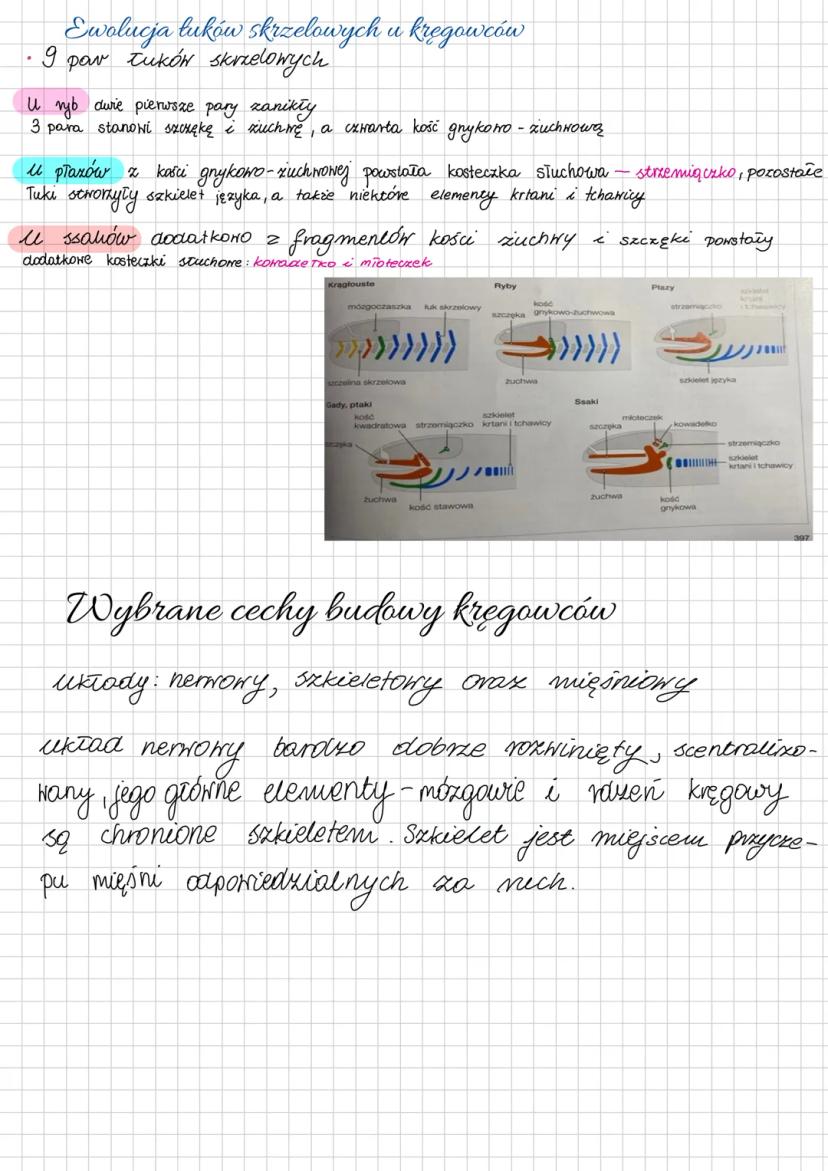 Ewolucja łuków skrzelowych u kręgowców
• 9 par łuków skrzelowych
U ryb dwie pierwsze pary zanikły
3 para stanowi szczękę i żuchwę, a czwarta kość gnykowo-żuchwową
U płazów z kości gnykowo-żuchwowej powstała kosteczka słuchowa – strzemiączko, pozostałe
łuki stworzyły szkielet języka, a także niektóre elementy krtani i tchawicy
U ssaków dodatkowo z fragmentów kości żuchwy i szczęki powstały
dodatkowe kosteczki słuchowe: kowadełko i młoteczek
Krągłouste
mózgoczaszka łuk skrzelowy
szczelina skrzelowa
Ryby
szczęka
kość
gnykowo-żuchwowa
żuchwa
Płazy
strzemiączko
szkielet
krtani
i tchawicy
szkielet języka
Gady, ptaki
kość
kwadratowa
strzemiączko
szkielet
krtani i tchawicy
szczęka
żuchwa
kość stawowa
Ssaki
szczęka
młoteczek
kowadełko
strzemiączko
szkielet
krtani i tchawicy
żuchwa
kość
gnykowa
397
Wybrane cechy budowy kręgowców
układy: nerwowy, szkieletowy oraz mięśniowy
układ nerwowy bardzo dobrze rozwinięty, scentralizo-
wany, jego główne elementy – mózgowie i rdzeń kręgowy
są chronione szkieletem. Szkielet jest miejscem przycze-
pu mięśni odpowiedzialnych za ruch.